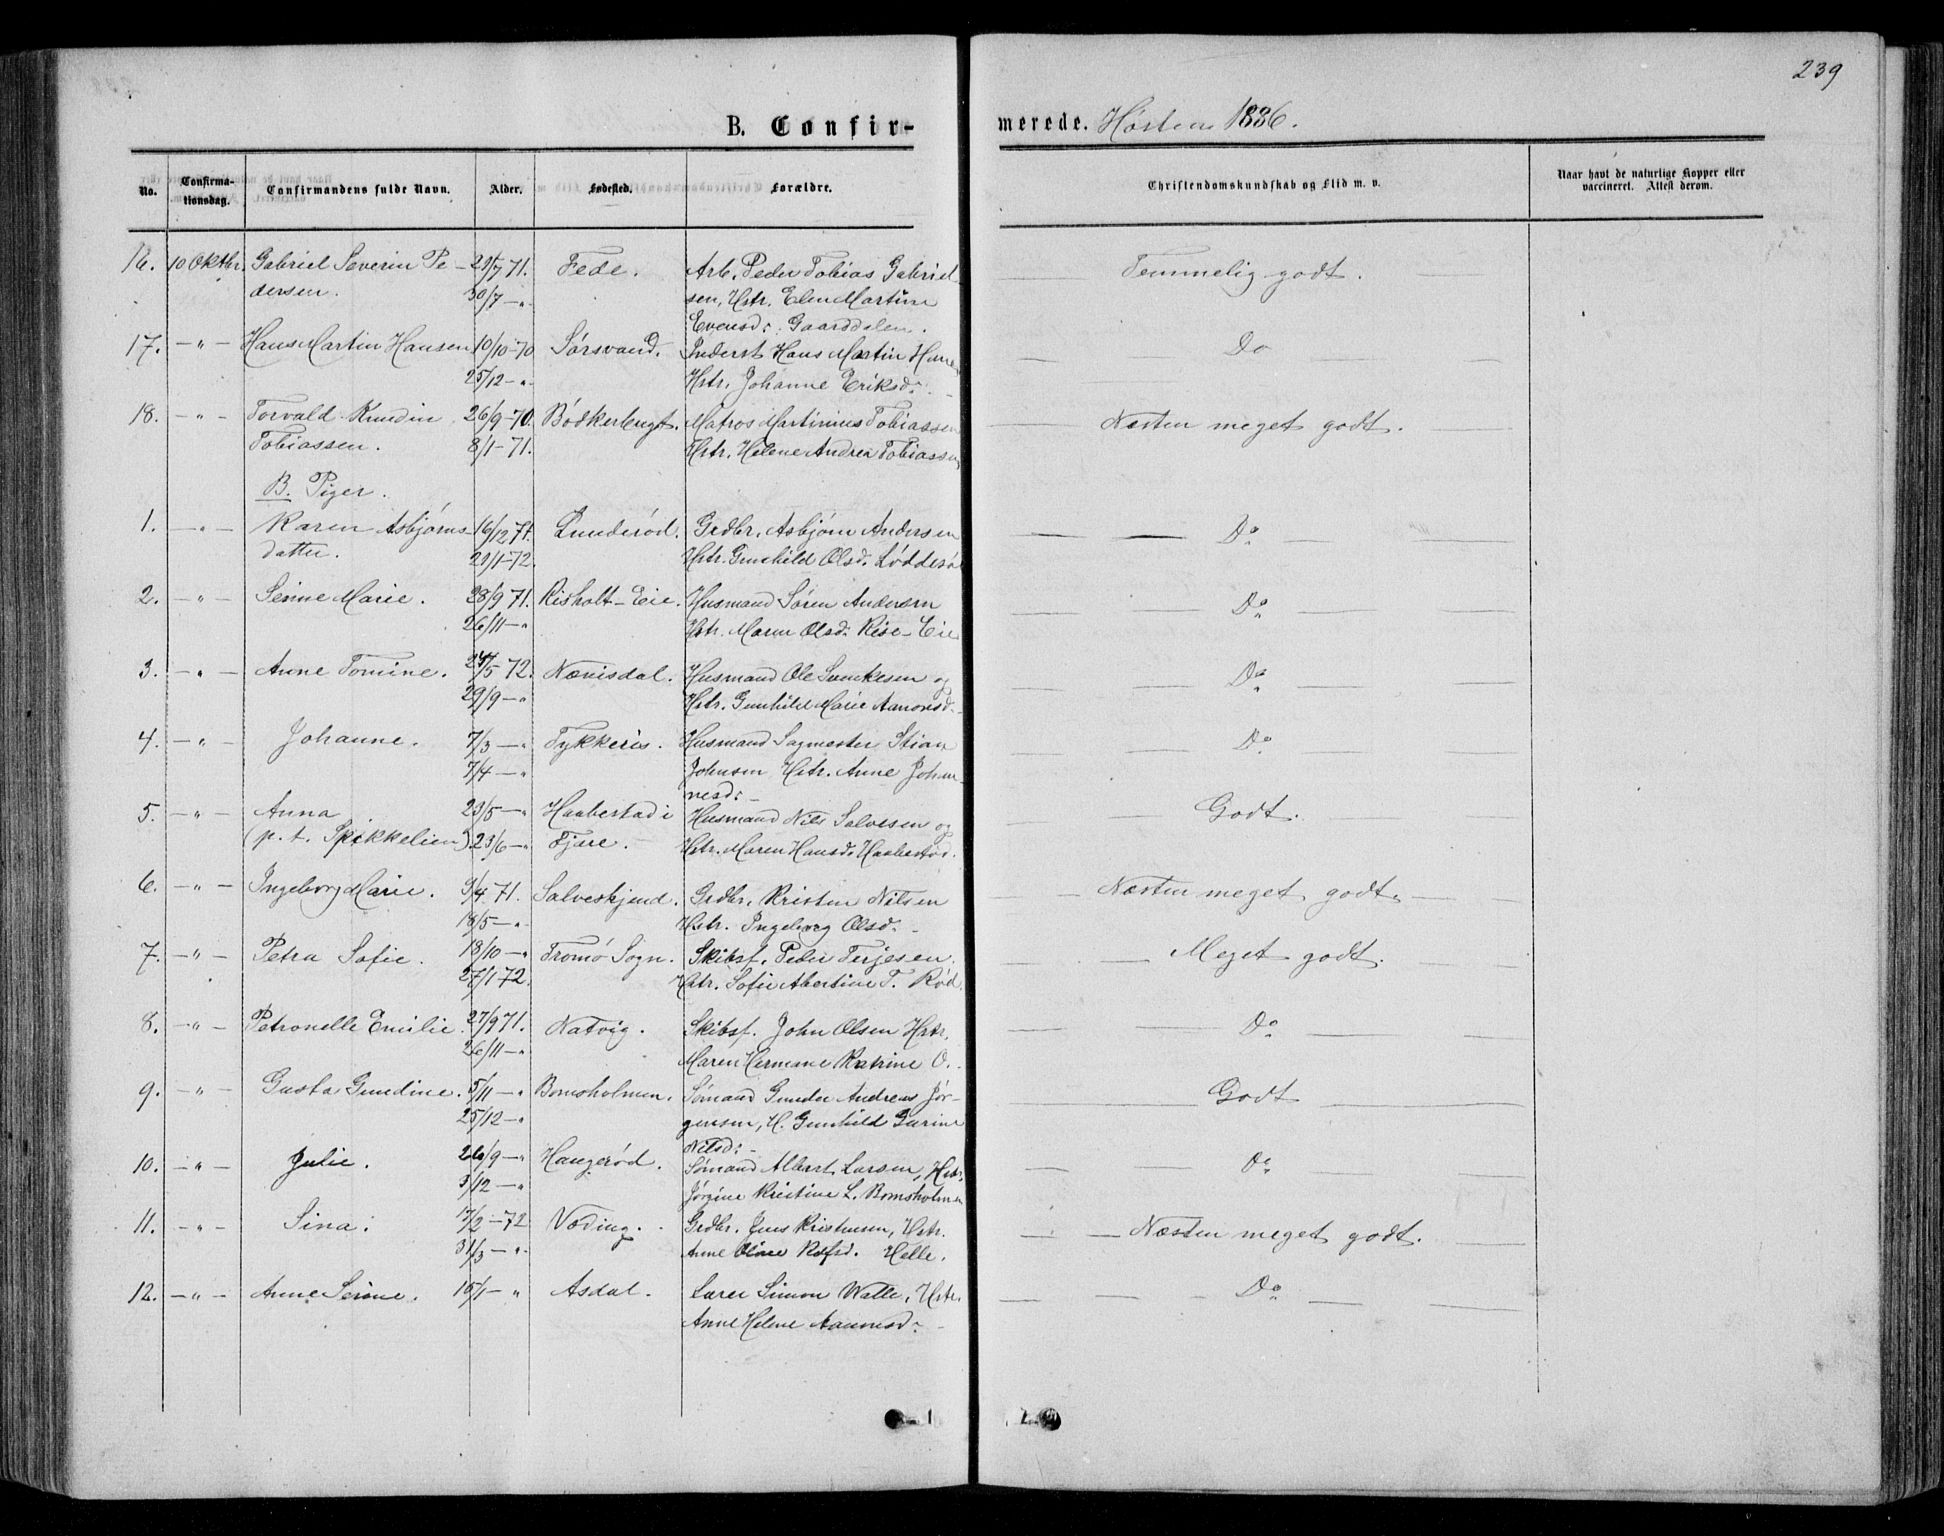 239
B. Confirmerede. Høsten 1886.
No. Confirmationsdag. Confirmandens fulde Navn. Alder. Fødested. Forældre. Christendomskundskab og Flid m. v. Naar havt de naturlige Kopper eller vaccineret. Attest derom.
16. 10 Oktbr. Gabriel Severin Pe- 29/7 71. Fede. Arb. Peder Tobias Gabriel- Temmelig godt.
dersen. 30/7 - " sen, Hstr. Elen Martine
Evensd: Gaarddalen.
17. - " - Hans Martin Hansen 10/10-70 Sørsvand. Inderst Hans Martin Hansen Do
25/12 - " Hstr. Johanne Eriksd:
18. - " - Torvald Knudin 26/9-70. Bödkerbugt. Matros Martinius Tobiassen Næsten meget godt.
Tobiassen. 8/1-71. Hstr. Helene Andrea Tobiassen
B. Piger.
1. - " - Karen Asbjørns- 16/12 71. Lunderød. Grdbr. Asbjørn Andersen Do
datter. 21/1-72. Hstr. Gunhild Olsd. Løddesøl
2. - " - Serine Marie. 28/9 71. Risholt-Eie. Husmand Søren Andersen Do
26/11 - " Hstr. Maren Olsd: Rise-Eie
3. - " - Anne Tomine. 24/5 72. Nævisdal. Husmand Ole Sunkesen og Do
29/9 - " Hstr. Gunhild Marie Aanonsd.
4. - " - Johanne. 7/3 - " Tykkeris. Husmand Sagmester Stian Do
7/4 - " Johnsen Hstr. Anne Johan-
nesd:
5. - " - Anna 23/5 - " Haabestad i Husmand Nils Salvesen og Godt.
(p. t. Spikkelien) 23/6 - " Fjære. Hstr. Maren Hansd. Haabestad.
6. - " - Ingeborg Marie. 9/4 71. Salveskjend. Grdbr. Kristen Nilsen Næsten meget godt.
18/5 - " Hstr. Ingeborg Olsd:
7. - " - Petra Sofie. 18/10 - " Tromø Sogn. Skibsf. Peder Terjesen Meget godt.
27/1 72. Hstr. Sofie Abertine T. Rød.
8. - " - Petronelle Emilie. 27/9 71. Natvig. Skibsf. John Olsen Hstr. Do
26/11 - " Maren Hermane Katrine O.
9. - " - Gusta Gundine. 5/11 - " Bomsholmen. Sømand Gunder Andreas Jør- Godt
25/12 - " gensen, H. Gunhild Gurine
Nilsd:
10. - " - Julie. 26/9 - " Haugerød. Sømand Albert Larsen, Hstr. Do
3/12 - " Jørgine Kristine L. Bomsholmen
11. - " - Sina. 17/2-72 Vøding. Grdbr. Jens Kristensen, Hstr. Næsten meget godt.
31/3 - " Anne Oline Rolfsd. Helle.
12. - " - Anne Serine. 15/1 - " Asdal. Lærer Simon Walle, Hstr. Do
Anne Helene Aanonsd: